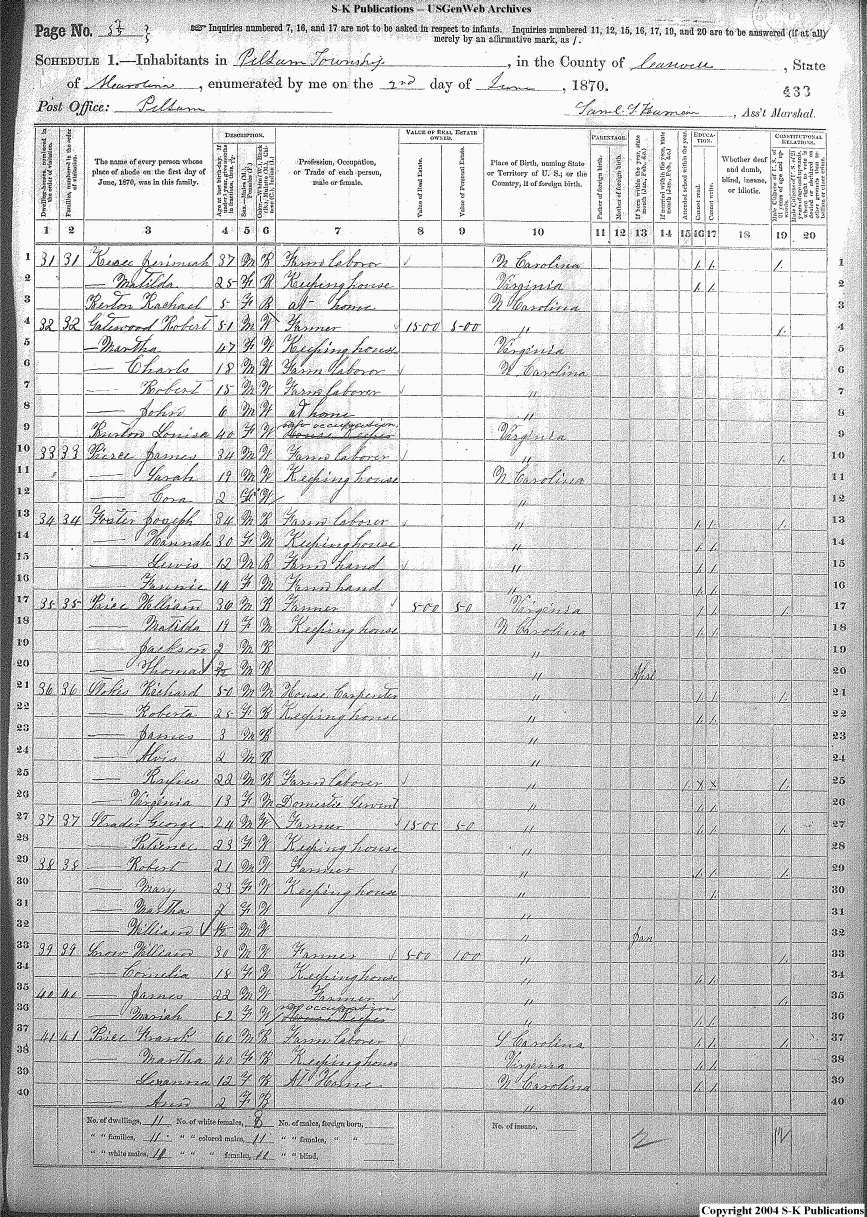 S-K Publications -- USGenWeb Archives
Page No. 5
Inquiries numbered 7, 16, and 17 are not to be asked in respect to infants. Inquiries numbered 11, 12, 15, 16, 17, 19, and 20 are to be answered (if at all) merely by an affirmative mark, as /.
Schedule 1.—Inhabitants in Pelham Township, in the County of Caswell, State
of N Carolina, enumerated by me on the 2nd day of June, 1870.
433
Post Office: Pelham
Ass't Marshal.
DESCRIPTION.
VALUE OF REAL ESTATE OWNED.
PARENTAGE.
EDUCATION.
CONSTITUTIONAL RELATIONS.
Dwelling-houses, numbered in the order of visitation.
Families, numbered in the order of visitation.
The name of every person whose place of abode on the first day of June, 1870, was in this family.
Profession, Occupation, or Trade of each person, male or female.
Value of Real Estate.
Value of Personal Estate.
Place of Birth, naming State or Territory of U. S.; or the Country, if of foreign birth.
Father of foreign birth.
Mother of foreign birth.
Attended school within the year.
Cannot read.
Cannot write.
Whether deaf and dumb, blind, insane, or idiotic.
1 2 3 4 5 6 7 8 9 10 11 12 13 14 15 16 17 18 19 20
1 31 31 Jerimiah 37 M B Farm laboror N Carolina / / / 1
2 — Matilda 25 F B Keeping house Virginia / / 2
3 Rachael 5 F B at home N Carolina 3
4 32 32 Gatewood Robert 51 M W Farmer 1500 500 " / 4
5 — Martha 47 F W Keeping house Virginia 5
6 — Charls 18 M W Farm laboror N Carolina 6
7 — Robert 15 M W Farm laborer " 7
8 — John 6 M W at home " 8
9 Burton Louisa 40 F W no occupation House Keeper Virginia 9
10 33 33 Pierce James 34 M W Farm laborer " / 10
11 — Sarah 19 M W Keeping house N Carolina 11
12 — Cora 2 F W " 12
13 34 34 Foster Joseph 34 M B Farm laborer " / / / 13
14 — Hannah 30 F M Keeping house " / / 14
15 — Lewis 12 M B Farm hand " / / 15
16 — Fannie 14 F M Farm hand " / / 16
17 35 35 Price William 36 M B Farmer 500 50 Virginia / / / 17
18 — Matilda 19 F M Keeping house N Carolina / / 18
19 — Jackson 2 M B " 19
20 — Thomas M B " April 20
21 36 36 Stokes Richard 50 M M House Carpenter " / / / 21
22 — Roberta 25 F B Keeping house " / / 22
23 — James 3 M B " 23
24 — Alvis 2 M B " 24
25 — Rufus 22 M B Farm laborer " / X X / 25
26 — Virginia 13 F M Domestic Servent " / / 26
27 37 37 Strader George 24 M W Farmer 1500 50 " / / / 27
28 — Patience 23 F W Keeping house " 28
29 38 38 — Robert 21 M W Farmer " / / / 29
30 — Mary 23 F W Keeping house " / 30
31 — Martha 2 F W " 31
32 — William M W " Jan 32
33 39 39 Crow William 30 M W Farmer 500 100 " / 33
34 — Cornelia 18 F W Keeping house " / / 34
35 40 40 — James 22 M W Farmer " / 35
36 — Mariah 52 F W no occupation House Keeper " / / 36
37 41 41 Price Frank 60 M B Farm laborer S Carolina / / / 37
38 — Martha 40 F B Keeping house Virginia / / 38
39 — Lexanna 12 F B At Home N Carolina / / 39
40 — Ann 2 F B " 40
No. of dwellings, 11 No. of white females, 8 No. of males, foreign born, No. of insane, 2 12
" " families, 11 " " colored males, 11 " " females, " "
" " white males, 10 " " females, 11 " " blind,
Copyright 2004 S-K Publications